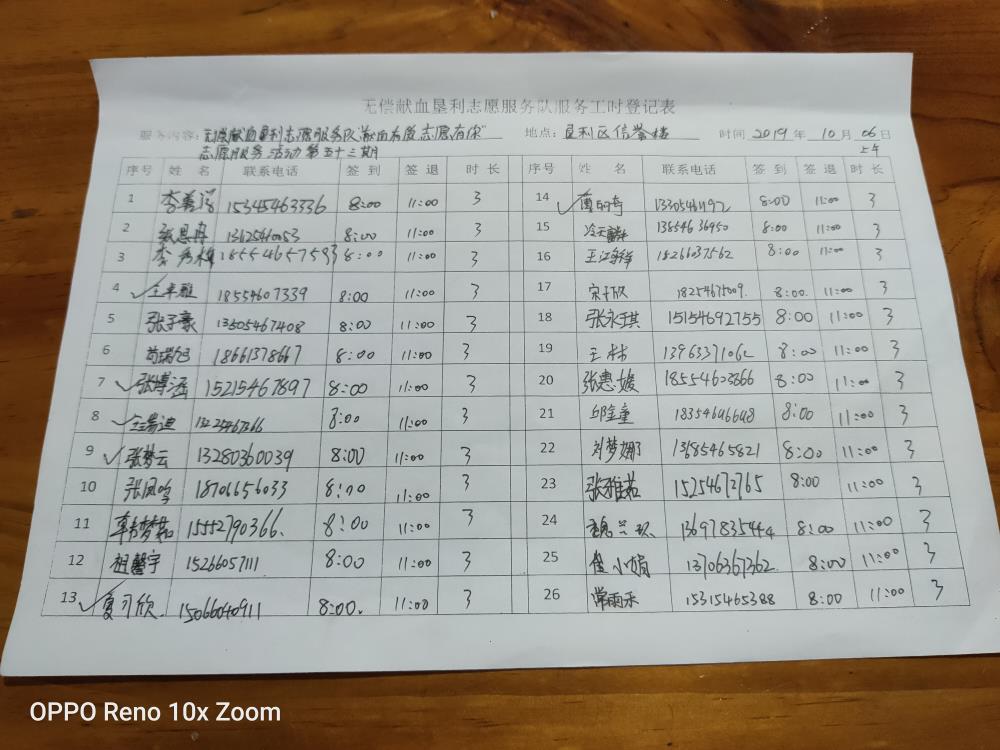 无偿献血垦利志愿服务队服务工时登记表
服务内容: 无偿献血垦利志愿服务队"献血有度 志愿有你" 地点: 垦利区信誉楼 时间 2019 年 10 月 06 日
志愿服务活动第五十三期 上午
序号 姓 名 联系电话 签 到 签 退 时 长 序号 姓 名 联系电话 签 到 签 退 时 长
1 15345463336 8:00 11:00 3 14 8:00 11:00 3
2 8:00 11:00 3 15 13854636950 8:00 11:00 3
3 李秀梅 18554657593 8:00 11:00 3 16 18266037562 8:00 11:00 3
4 18554607339 8:00 11:00 3 17 18254675009. 8:00. 11:00 3
5 张子豪 13505467408 8:00 11:00 3 18 张永琪 15154692755 8:00 11:00 3
6 苟瑞旭 18661378667 8:00 11:00 3 19 王林 13963371062 8:00 11:00 3
7 张博涵 15215467897 8:00 11:00 3 20 张惠媛 18554603866 8:00 11:00 3
8 8:00 11:00 3 21 邱金童 18354646648 8:00 11:00 3
9 张梦云 13280360039 8:00 11:00 3 22 刘梦娜 13685465821 8:00 11:00 3
10 张凤鸣 18706656033 8:00 11:00 3 23 张雅茹 15254672765 8:00 11:00 3
11 15552790366. 8:00 11:00 3 24 13697835444 8:00 11:00 3
12 祖馨宇 15266057111 8:00 11:00 3 25 崔小娟 13706367362 8:00 11:00 3
13 15066040911 8:00. 11:00 3 26 常雨禾 15315465388 8:00 11:00 3
OPPO Reno 10x Zoom